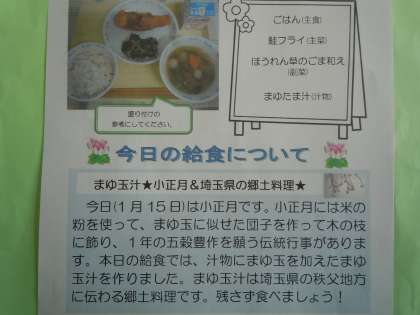 ごはん(主食)
鮭フライ(主菜)
ほうれん草のごま和え
(副菜)
まゆたま汁(汁物)
盛り付けの
参考にしてください。
今日の給食について
まゆ玉汁★小正月&埼玉県の郷土料理★
今日(1月15日)は小正月です。小正月には米の
粉を使って、まゆ玉に似せた団子を作って木の枝
に飾り、1年の五穀豊作を願う伝統行事がありま
す。本日の給食では、汁物にまゆ玉を加えたまゆ
玉汁を作りました。まゆ玉汁は埼玉県の秩父地方
に伝わる郷土料理です。残さず食べましょう!